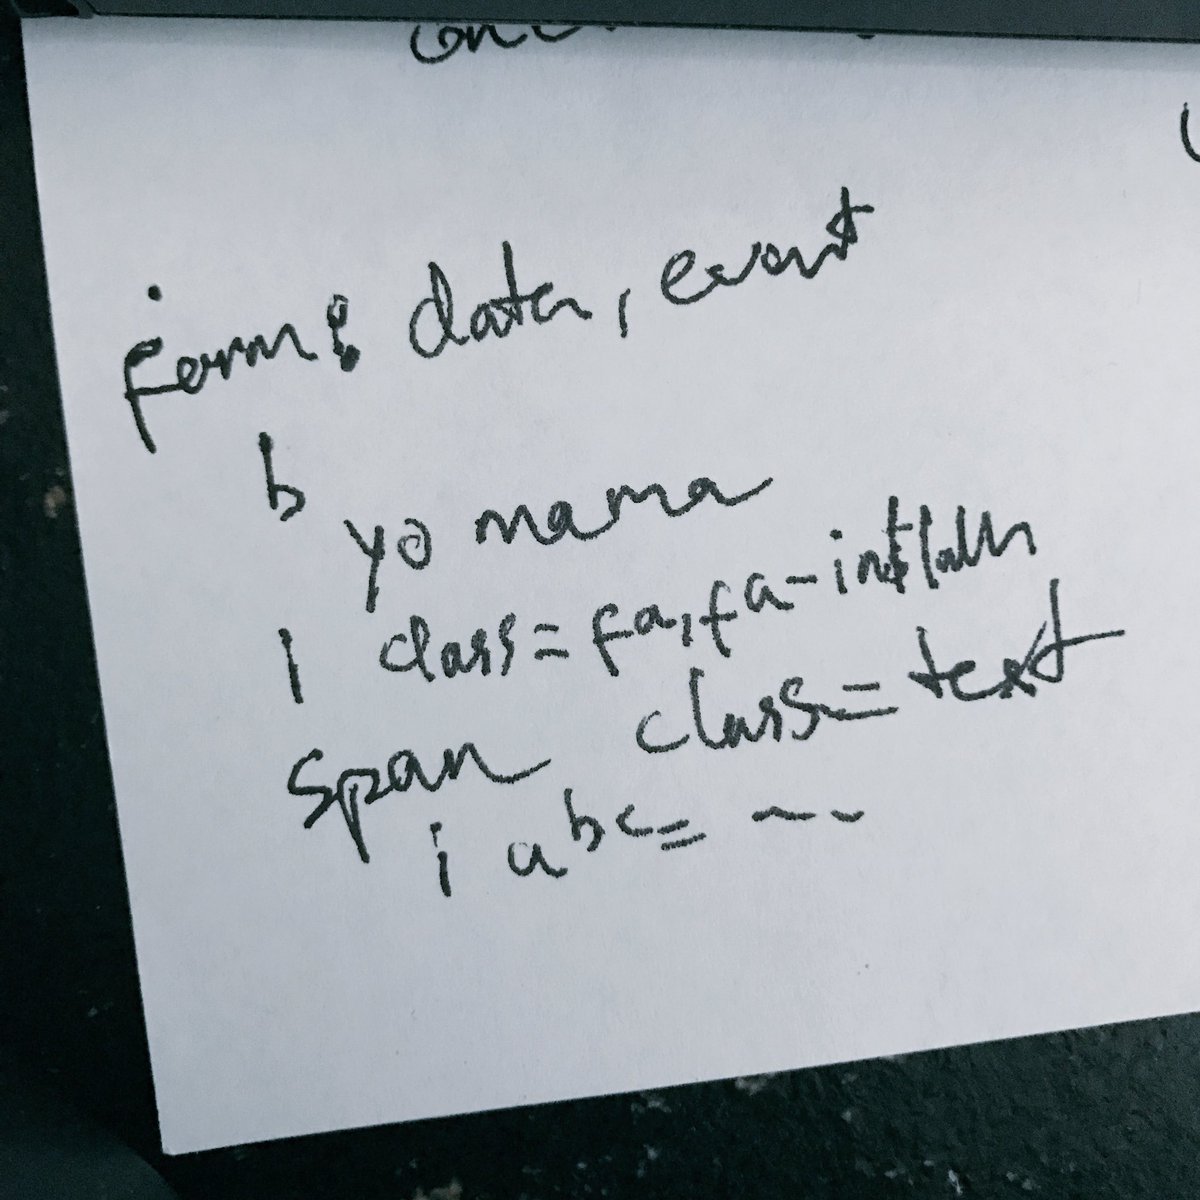 form: data, event
b
yo mama
i class=fa,fa-
span class=text
i abc= ~~